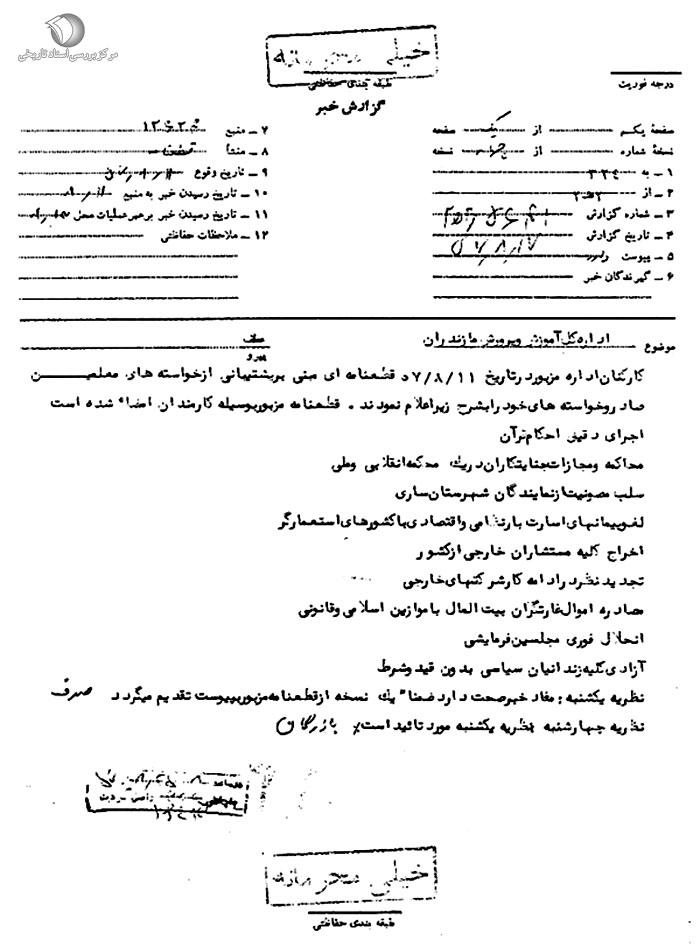 مرکز بررسی اسناد تاریخی
خیلی محرمانه
طبقه بندی حفاظتی
درجه فوریت
گزارش خبر
صفحه یکم از یک صفحه
نسخه شماره از نسخه
۱ ـ به ۳۳۴
۲ ـ از
۳ ـ شماره گزارش
۴ ـ تاریخ گزارش ۵۷/۸/۱۷
۵ ـ پیوست دارد
۶ ـ گیرندگان خبر
۷ ـ منبع
۸ ـ منشأ
۹ ـ تاریخ وقوع
۱۰ ـ تاریخ رسیدن خبر به منبع
۱۱ ـ تاریخ رسیدن خبر برهبر عملیات محل
۱۲ ـ ملاحظات حفاظتی
موضوع اداره کل آموزش و پرورش مازندران
عطف
پیرو
کارکنان اداره مزبور در تاریخ ۵۷/۸/۱۱ قطعنامه ای مبنی بر پشتیبانی از خواسته های معلمین
صادر و خواسته های خود را بشرح زیر اعلام نمودند . قطعنامه مزبور بوسیله کارمندان امضاء شده است
اجرای دقیق احکام قرآن
محاکمه و مجازات جنایتکاران در یک محکمه انقلابی وطی
سلب مصونیت از نمایندگان شهرستان ساری
لغو پیمانهای اسارت بار نظامی و اقتصادی با کشورهای استعمارگر
اخراج کلیه مستشاران خارجی از کشور
تجدید نظر در ادامه کار شرکتهای خارجی
مصادره اموال غارتگران بیت المال با موازین اسلامی و قانونی
انحلال فوری مجلسین فرمایشی
آزادی کلیه زندانیان سیاسی بدون قید و شرط
نظریه یکشنبه : مفاد خبر صحت دارد ضمنا" یک نسخه از قطعنامه مزبور بپیوست تقدیم میگردد صدف
نظریه چهارشنبه نظریه یکشنبه مورد تائید است٪ بازرگان
خیلی محرمانه
طبقه بندی حفاظتی